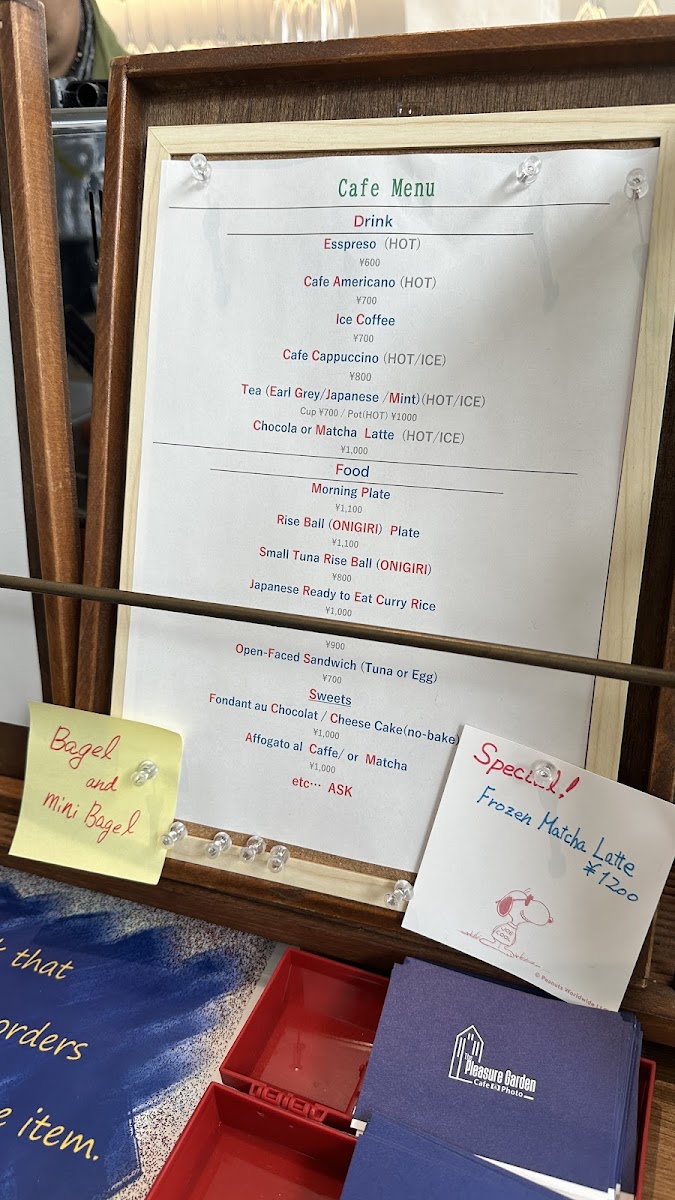 Cafe Menu
Drink
Esspreso (HOT)
¥600
Cafe Americano (HOT)
¥700
Ice Coffee
¥700
Cafe Cappuccino (HOT/ICE)
¥800
Tea (Earl Grey/Japanese /Mint)(HOT/ICE)
Cup ¥700 / Pot(HOT) ¥1000
Chocola or Matcha Latte (HOT/ICE)
¥1,000
Food
Morning Plate
¥1,100
Rise Ball (ONIGIRI) Plate
¥1,100
Small Tuna Rise Ball (ONIGIRI)
¥800
Japanese Ready to Eat Curry Rice
¥1,000
¥900
Open-Faced Sandwich (Tuna or Egg)
¥700
Sweets
Fondant au Chocolat / Cheese Cake(no-bake)
¥1,000
Affogato al Caffe/ or Matcha
¥1,000
etc… ASK
Bagel
and
mini Bagel
Special!
Frozen Matcha Latte
¥1200
JOE
COOL
© Peanuts Worldwide
that
orders
item.
The
Pleasure Garden
Cafe Photo